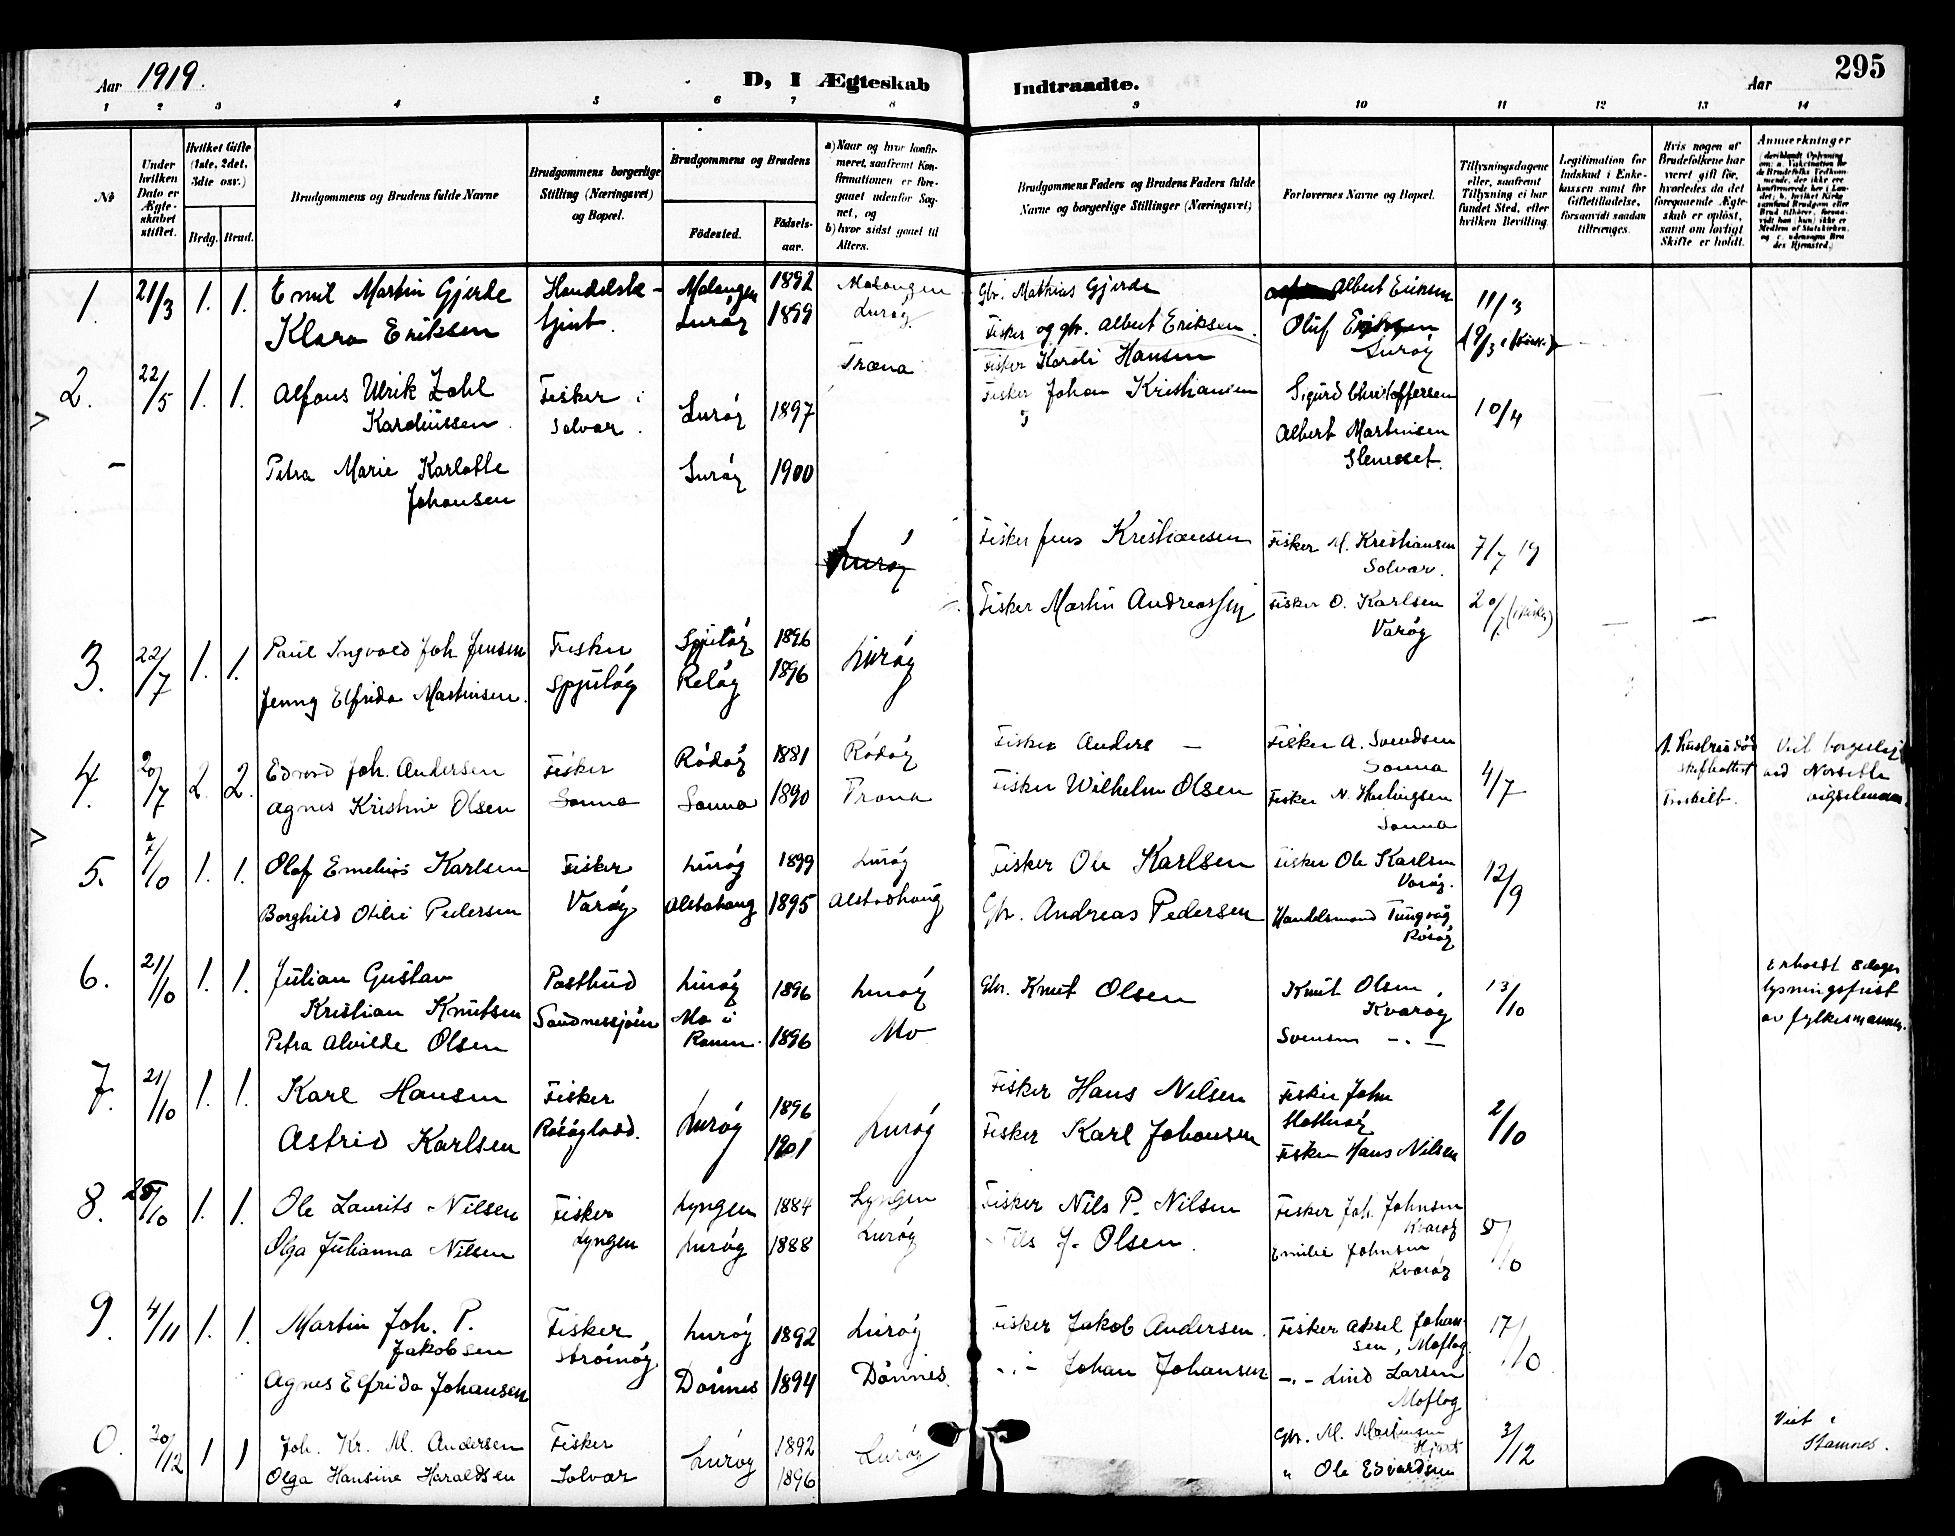 Aar 1919. D, I Ægteskab Indtraadte. Aar 295
1 2 3 4 5 6 7 8 9 10 11 12 13 14
No
Under hvilken Dato er Ægteskabet stiftet.
Hvilket Gifte (1ste, 2det, 3dte osv.)
Brdg. Brud.
Brudgommens og Brudens fulde Navne
Brudgommens borgerlige Stilling (Næringsvei) og Bopæl.
Brudgommens og Brudens
Fødested. Fødselsaar.
a) Naar og hvor konfirmeret, saafremt Konfirmationen er foregaaet udenfor Sognet, og
b) hvor sidst gaaet til Alters.
Brudgommens Faders og Brudens Faders fulde Navne og borgerlige Stillinger (Næringsvei)
Forlovernes Navne og Bopæl.
Tillysningsdagene eller, saafremt Tillysning ei har fundet Sted, efter hvilken Bevilling.
Legitimation for Indskud i Enkekassen samt for Giftetilladelse, forsaavidt saadan tiltrænges.
Hvis nogen af Brudefolkene har været gift før, hvorledes da det foregaaende Ægteskab er opløst, samt om lovligt Skifte er holdt.
Anmærkninger
1. 21/3 1. 1. Emil Martin Gjerde Malangen 1892 Malangen Gbr. Mathias Gjerde Albert Eriksen 11/3
Klara Eriksen Lurøy 1899 Lurøy Fisker og gbr. Albert Eriksen. Oluf Eriksen
Lurøy 19/3
Træna Fisker Karoli Hansen
2. 22/5 1. 1. Alfons Ulrik Zahl Fisker i Lurøy 1897 Fisker Johan Kristiansen Sigurd Christoffersen 10/4
Karoliussen. Solvær. Albert Martinsen
Stenesset.
Petra Marie Karlotte Lurøy 1900
Johansen
Lurøy Fisker Jens Kristiansen Fisker M. Kristiansen 7/7 19
Solvær.
Fisker Martin Andreassen Fisker O. Karlsen 20/7
Varøy
3. 22/7 1. 1. Paul Ingvald Joh Jensen Fisker 1896 Lurøy
Jenny Elfrida Martinsen. Reløy 1896
4. 20/7 2. 2. Edvard Joh. Andersen Fisker Rødøy 1881 Rødøy Fisker Anders — Fisker A. Svendsen 4/7
Sonna
Agnes Kristine Olsen Sonna Sonna 1890 Træna Fisker Wilhelm Olsen Fisker N.
Sonna
5. 7/10 1. 1. Olaf Emelius Karlsen Fisker Lurøy 1899 Lurøy Fisker Ole Karlsen Fisker Ole Karlsen 12/9
Varøy.
Borghild Otilie Pedersen Varøy Alstahaug 1895 Alstadhaug Gbr. Andreas Pedersen Handelsmand Tungvåg
6. 21/10 1. 1. Julian Gustav Postbud Lurøy 1896 Lurøy Gbr. Knut Olsen Knut Olsen, 13/10 Erholdt 8 dages
Kristian Knutsen Sandnessjøen Mo i Kvarøy lysningsfrist
Petra Alvilde Olsen Ranen. 1896 Mo Svensen -.- av fylkesmannen.
7. 21/10 1. 1. Karl Hansen Fisker Lurøy 1896 Lurøy Fisker Hans Nilsen Fisker John 2/10
Astrid Karlsen 1901 Fisker Karl Johansen Fisker Hans Nilsen
8. 1. 1. Ole Laurits Nilsen Fisker Lyngen 1884 Lyngen Fisker Nils P. Nilsen Fisker Joh. Johnsen
Kvarøy
Olga Julianna Nilsen Lyngen Lurøy 1888 Lurøy Olsen. Emilie Johnsen
Kvarøy
9. 4/11 1. 1. Martin Joh. P. Fisker, Lurøy 1892 Lurøy Fisker Jakob Andersen. Fisker Aksel Johan- 17/10
Jakobsen Strømøy sen, Moflag
Agnes Elfrida Johansen Dønnes 1894 Dønnes. -.- Johan Johansen -.- Lind Larsen
Moflag
0. 30/12 1 1 Joh. Kr. M. Andersen Fisker Lurøy 1892 Lurøy Gbr. M. Martinsen 3/12 Viet i
Olga Hansine Haraldsen Solvær 1896 " Ole Edvardsen Stamnes.